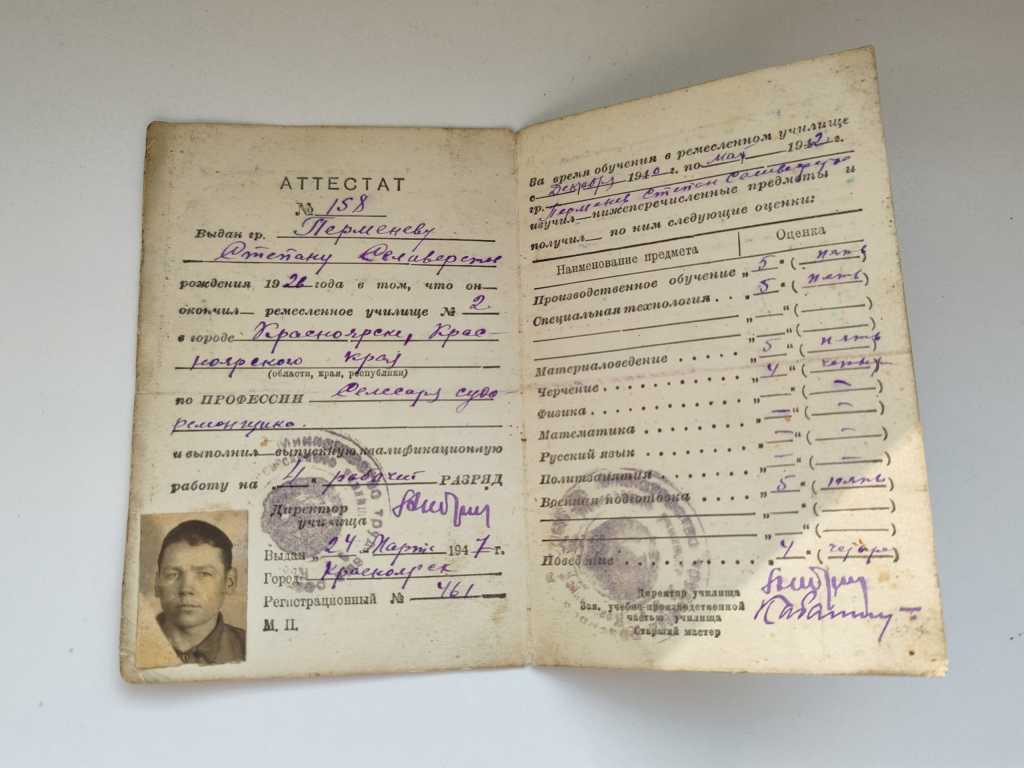 АТТЕСТАТ
№ 158
Выдан гр. Перменеву
Степану Селиверсты
рождения 1926 года в том, что он
окончил ремесленное училище № 2
в городе Красноярск, Крас-
ноярского края
(области, края, республики)
по ПРОФЕССИИ Слесаря судо
ремонщика.
и выполнил выпускную квалификационную
работу на „4“ рабочий РАЗРЯД
Директор
училища
Выдан „24“ Марта 1947 г.
Город Красноярск
Регистрационный № 461
М. П.
За время обучения в ремесленном училище
с Декабря 1940 г. по Май 1942 г.
гр. Перменев Степан Селиверсто
изучил нижеперечисленные предметы и
получил по ним следующие оценки:
Наименование предмета Оценка
Производственное обучение „5“ (пять)
Специальная технология . . . „5“ (пять)
„ “ ( )
„ “ ( )
Материаловедение . . . . . „5“ (пять)
Черчение . . . . . . . . „4“ (четыре)
Физика . . . . . . . . . „—“ (—)
Математика . . . . . . . „—“ (—)
Русский язык . . . . . . „—“ (—)
Политзанятия . . . . . . „—“ (—)
Военная подготовка . . . . „5“ (пять)
„ “ ( )
„ “ ( )
Поведение . . . . . . . . „4“ (четыре)
Директор училища
Зав. учебно-производственной
частью училища
Старший мастер